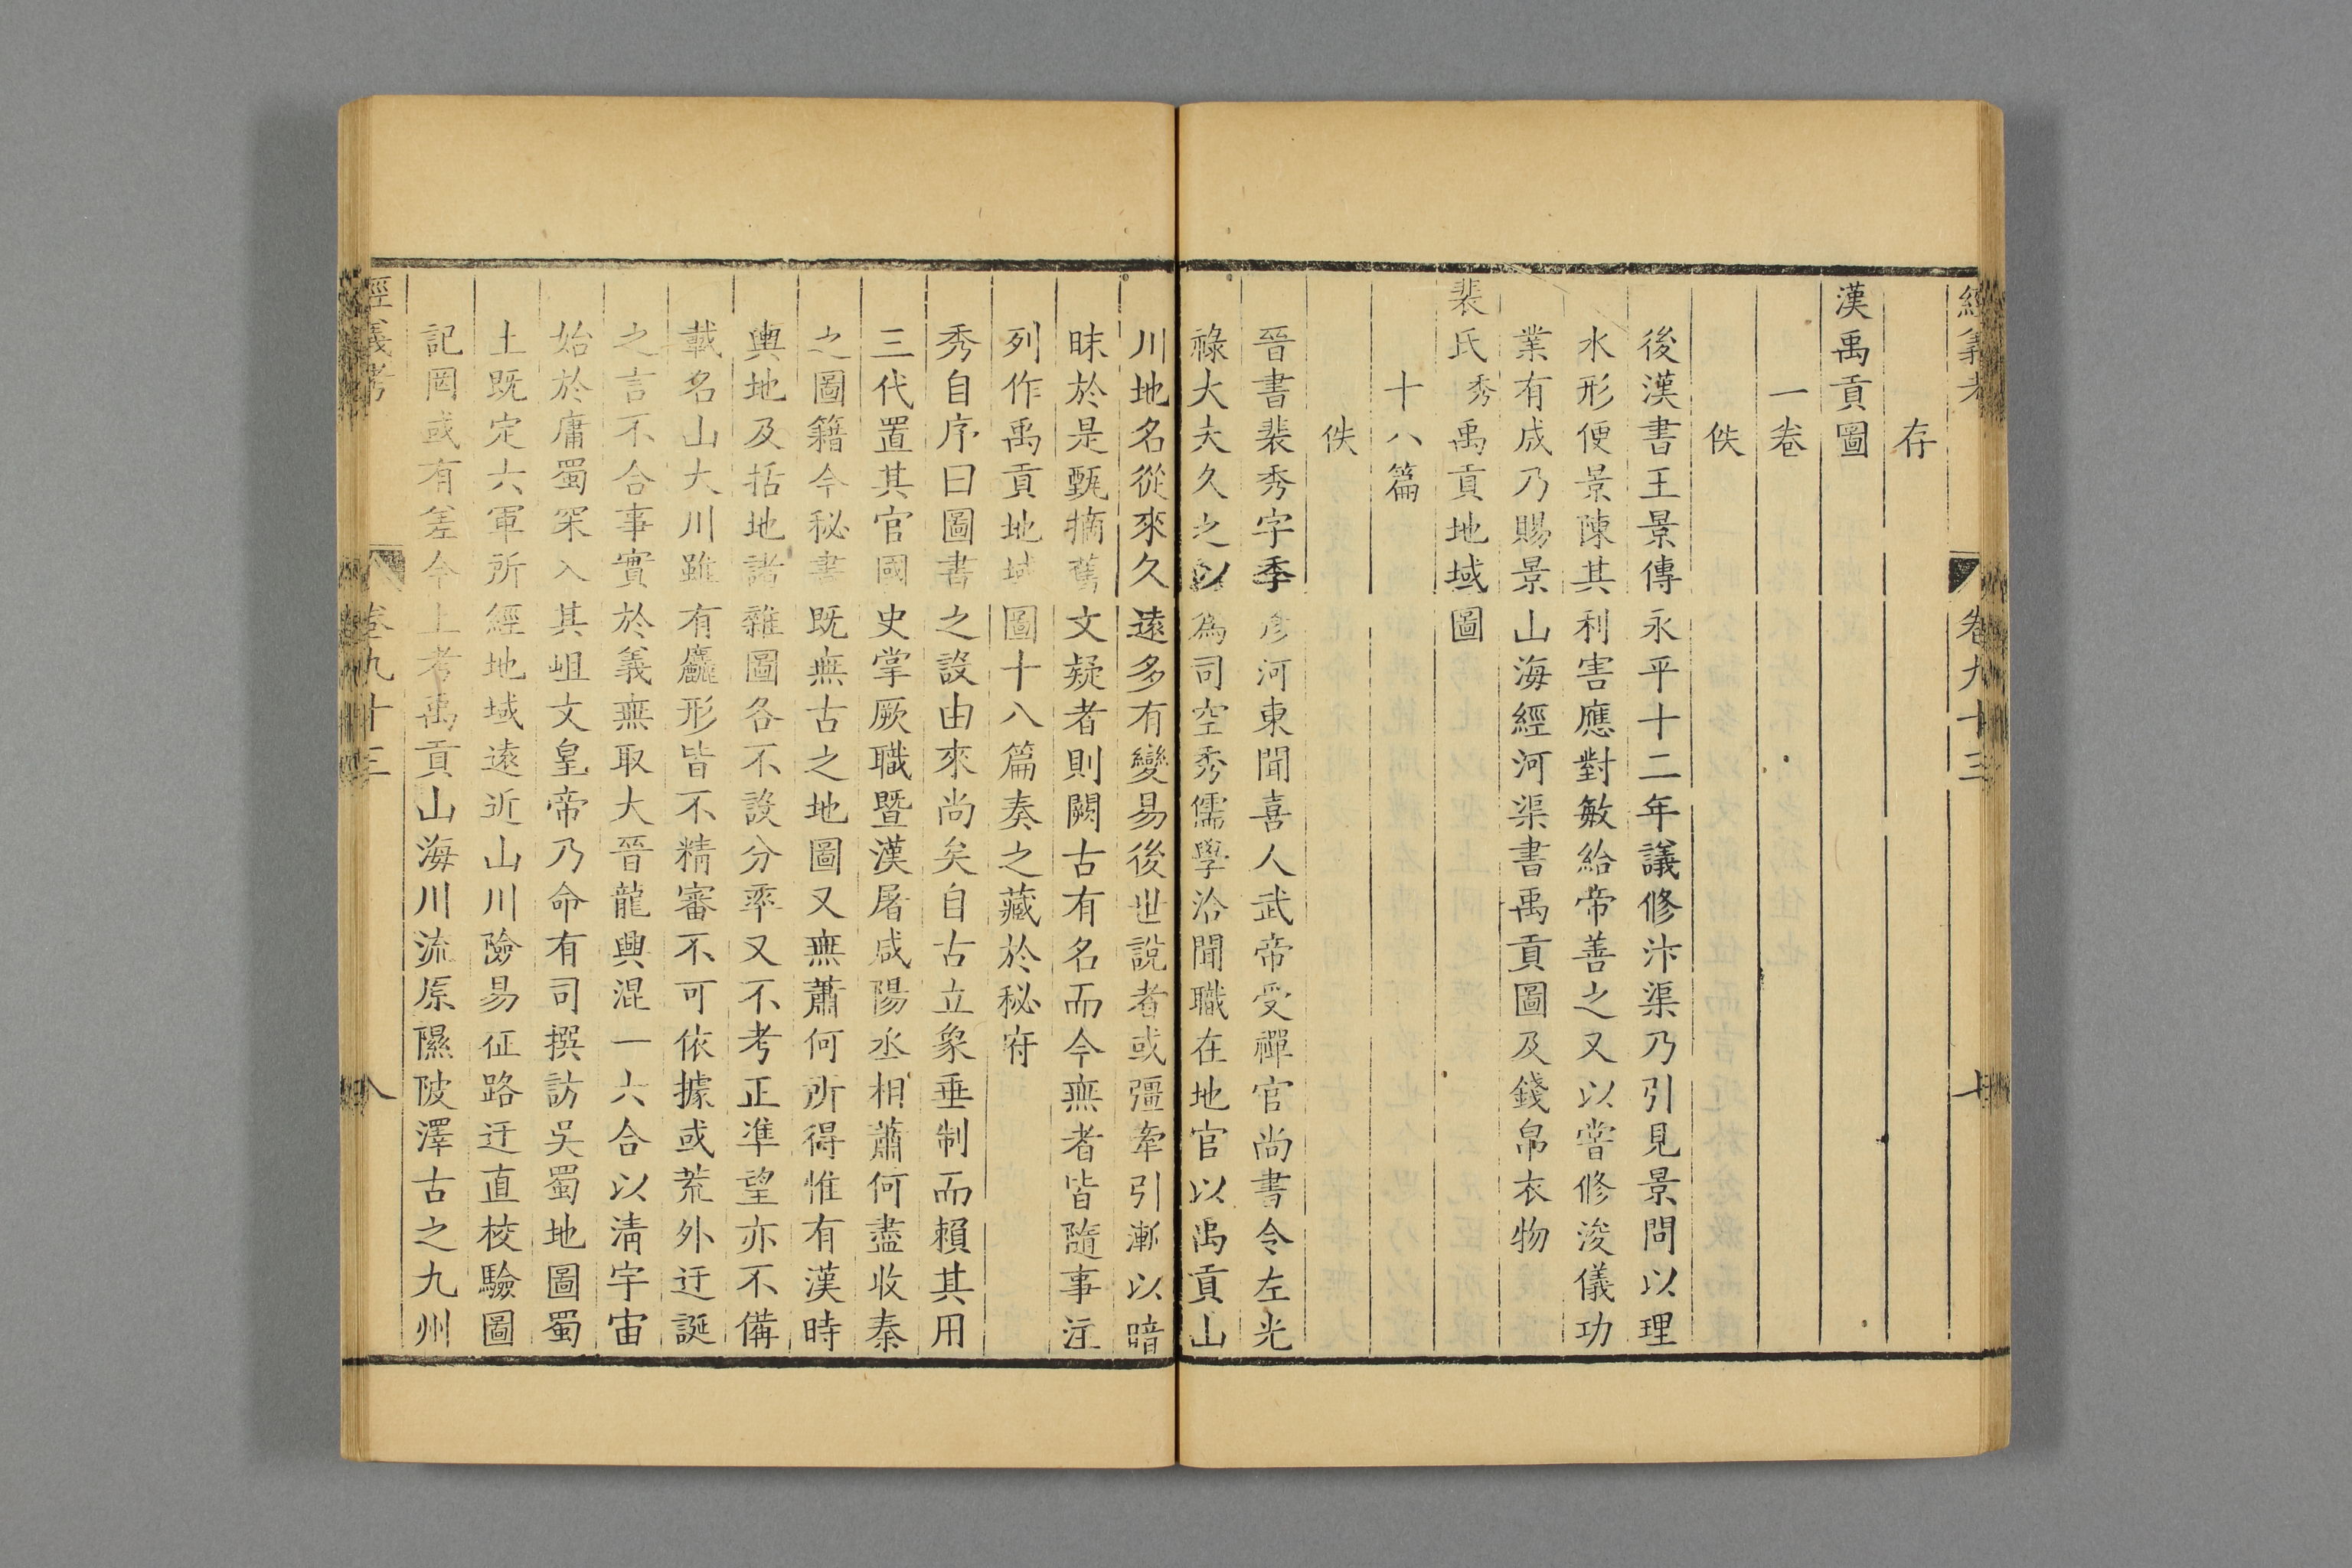 經義考 卷九十三 七
存
漢禹貢圖
一卷
佚
後漢書王景傳永平十二年議修汴渠乃引見景問以理
水形便景陳其利害應對敏給帝善之又以嘗修浚儀功
業有成乃賜景山海經河渠書禹貢圖及錢帛衣物
裴氏秀禹貢地域圖
十八篇
佚
晉書裴秀字季彥河東聞喜人武帝受禪官尚書令左光
祿大夫久之以為司空秀儒學洽聞職在地官以禹貢山
川地名從來久遠多有變易後世說者或彊牽引漸以暗
昧於是甄摘舊文疑者則闕古有名而今無者皆隨事注
列作禹貢地域圖十八篇奏之藏於秘府
秀自序曰圖書之設由來尚矣自古立象垂制而賴其用
三代置其官國史掌厥職暨漢屠咸陽丞相蕭何盡收秦
之圖籍今秘書既無古之地圖又無蕭何所得惟有漢時
輿地及括地諸雜圖各不設分率又不考正準望亦不備
載名山大川雖有麤形皆不精審不可依據或荒外迂誕
之言不合事實於義無取大晉龍興混一六合以清宇宙
始於庸蜀罙入其岨文皇帝乃命有司撰訪吳蜀地圖蜀
土既定六軍所經地域遠近山川險易征路迂直校驗圖
記罔或有差今上考禹貢山海川流原隰陂澤古之九州
經義考 卷九十三 八